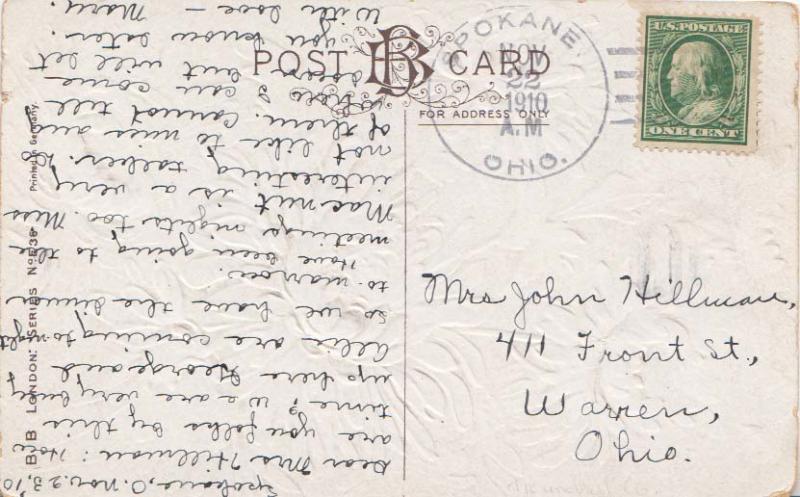 POST CARD
FOR ADDRESS ONLY
SPOKANE
NOV
22
1910
A.M
OHIO.
U.S. POSTAGE
ONE CENT
Mrs John Hillman,
411 Front St.,
Warren,
Ohio.
Spokane, O. Nov. 23, 10
Dear Mrs Hillman: How
are you folks by this
time; we are very busy
up here George and
Allie are coming to-night
so we have the dinner
to-marrow.
Have been going to the
meetings nights too. Miss
Mac nut is a very
interesting talker. Do
not like to miss any
of them. Cannot tell
I can come
down but will let
you know later.
With love — Mary.
B B LONDON. SERIES No E36
Printed in Germany.